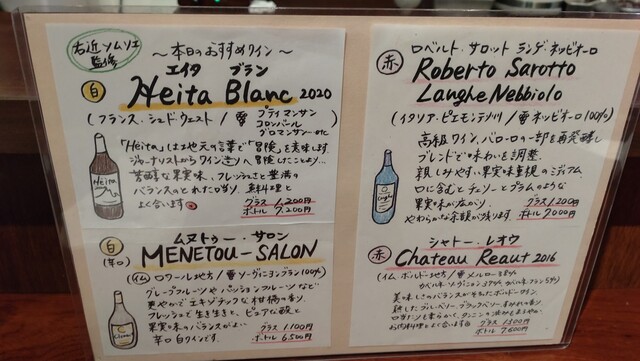 右近ソムリエ
監修
〜本日のおすすめワイン〜
エイタ ブラン
白 Heita Blanc 2020
(フランス・シュドウエスト/
プティマンサン
コロンバール
グロマンサン etc
「Heita」は地元の言葉で「冒険」を意味します。
ジャーナリストからワイン造りへ冒険したことより…
芳醇な果実味、フレッシュさと豊満の
バランスのとれた口当り。魚料理と
よく合います
グラス 1,200円
ボトル 7,200円
ムヌトゥー・サロン
白 MENETOU-SALON
(辛口)
(仏・ロワール地方/ソーヴィニヨンブラン100%)
グレープフルーツやパッションフルーツなど
爽やかでエキゾチックな柑橘の香り。
フレッシュで生き生きと、ピュアな酸と
果実味のバランスがよい
辛口白ワインです。
グラス 1,100円
ボトル 6,500円
ロベルト・サロット ランゲ・ネッビオーロ
赤 Roberto Sarotto
Langhe Nebbiolo
(イタリア・ピエモンテ州/ネッビオーロ100%)
高級ワイン、バローロの一部を再発酵し
ブレンドで味わいを調整。
親しみやすい果実味重視のミディアム。
口に含むとチェリーとプラムのような
果実味が広がり、
やわらかな余韻が残ります。
グラス 1,200円
ボトル 7,000円
シャトー・レオウ
赤 Chateau Reaut 2016
(仏・ボルドー地方/メルロー58%
カベルネ・ソヴィニヨン37% カベルネ・フラン5%)
美味しさのバランスが
熟したブルーベリー、ブラックベリー
口当たりも柔らかく、タンニンの
お肉料理とよく合います
グラス 1,300円
ボトル 7,600円